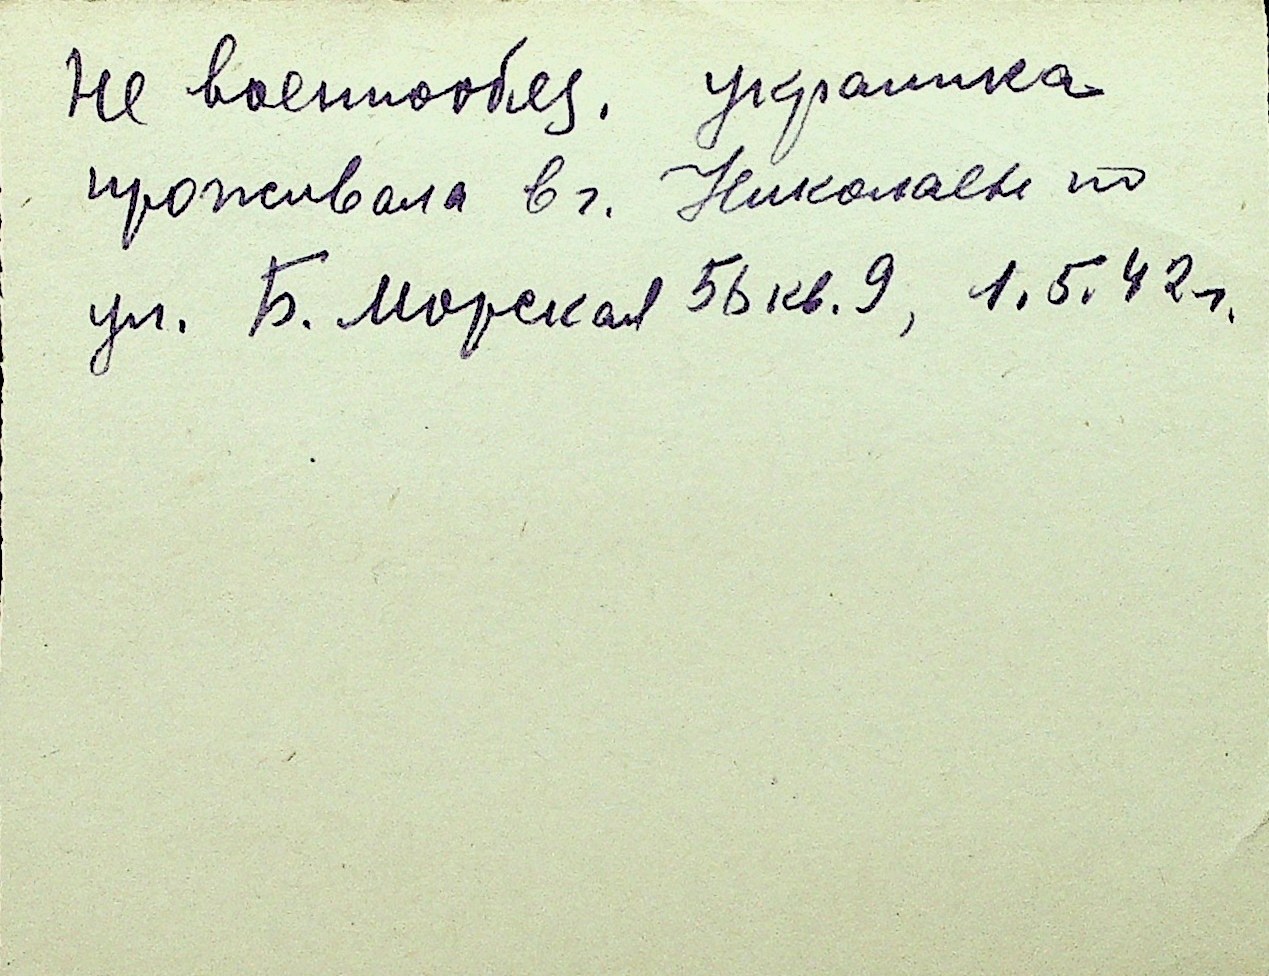 Не военнообяз. украинка
проживала в г. Николаеве по
ул. Б. Морская 56 кв. 9, 1.5.42 г.